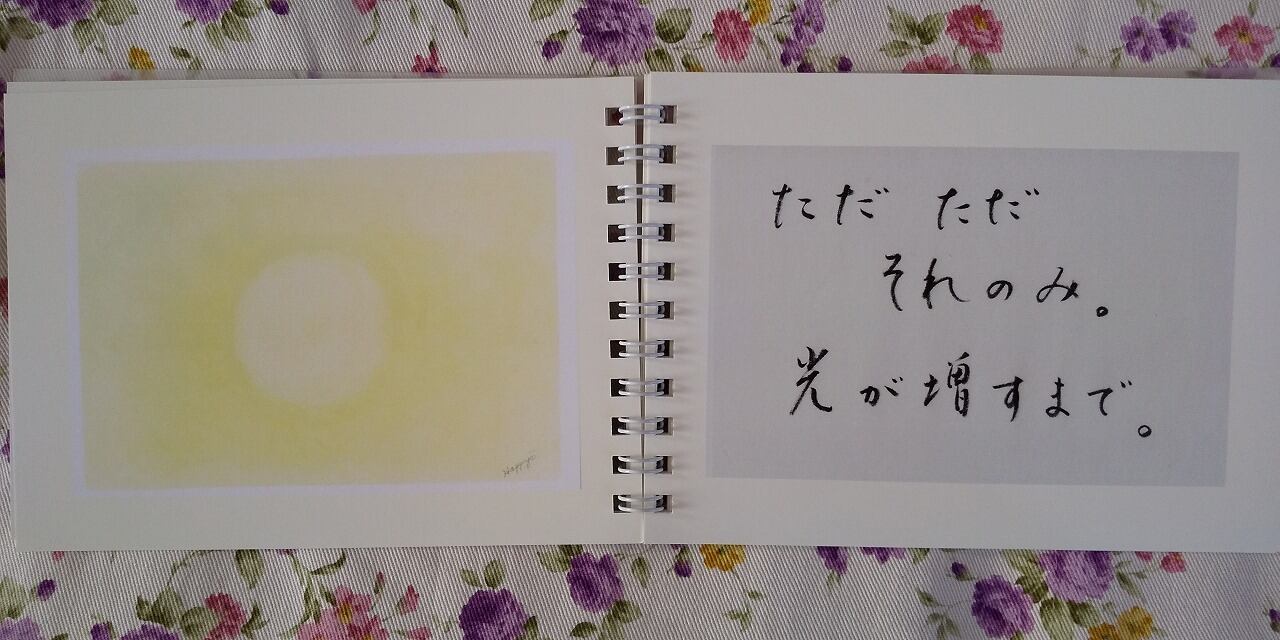 Happy
ただ ただ
それのみ。
光が増すまで。